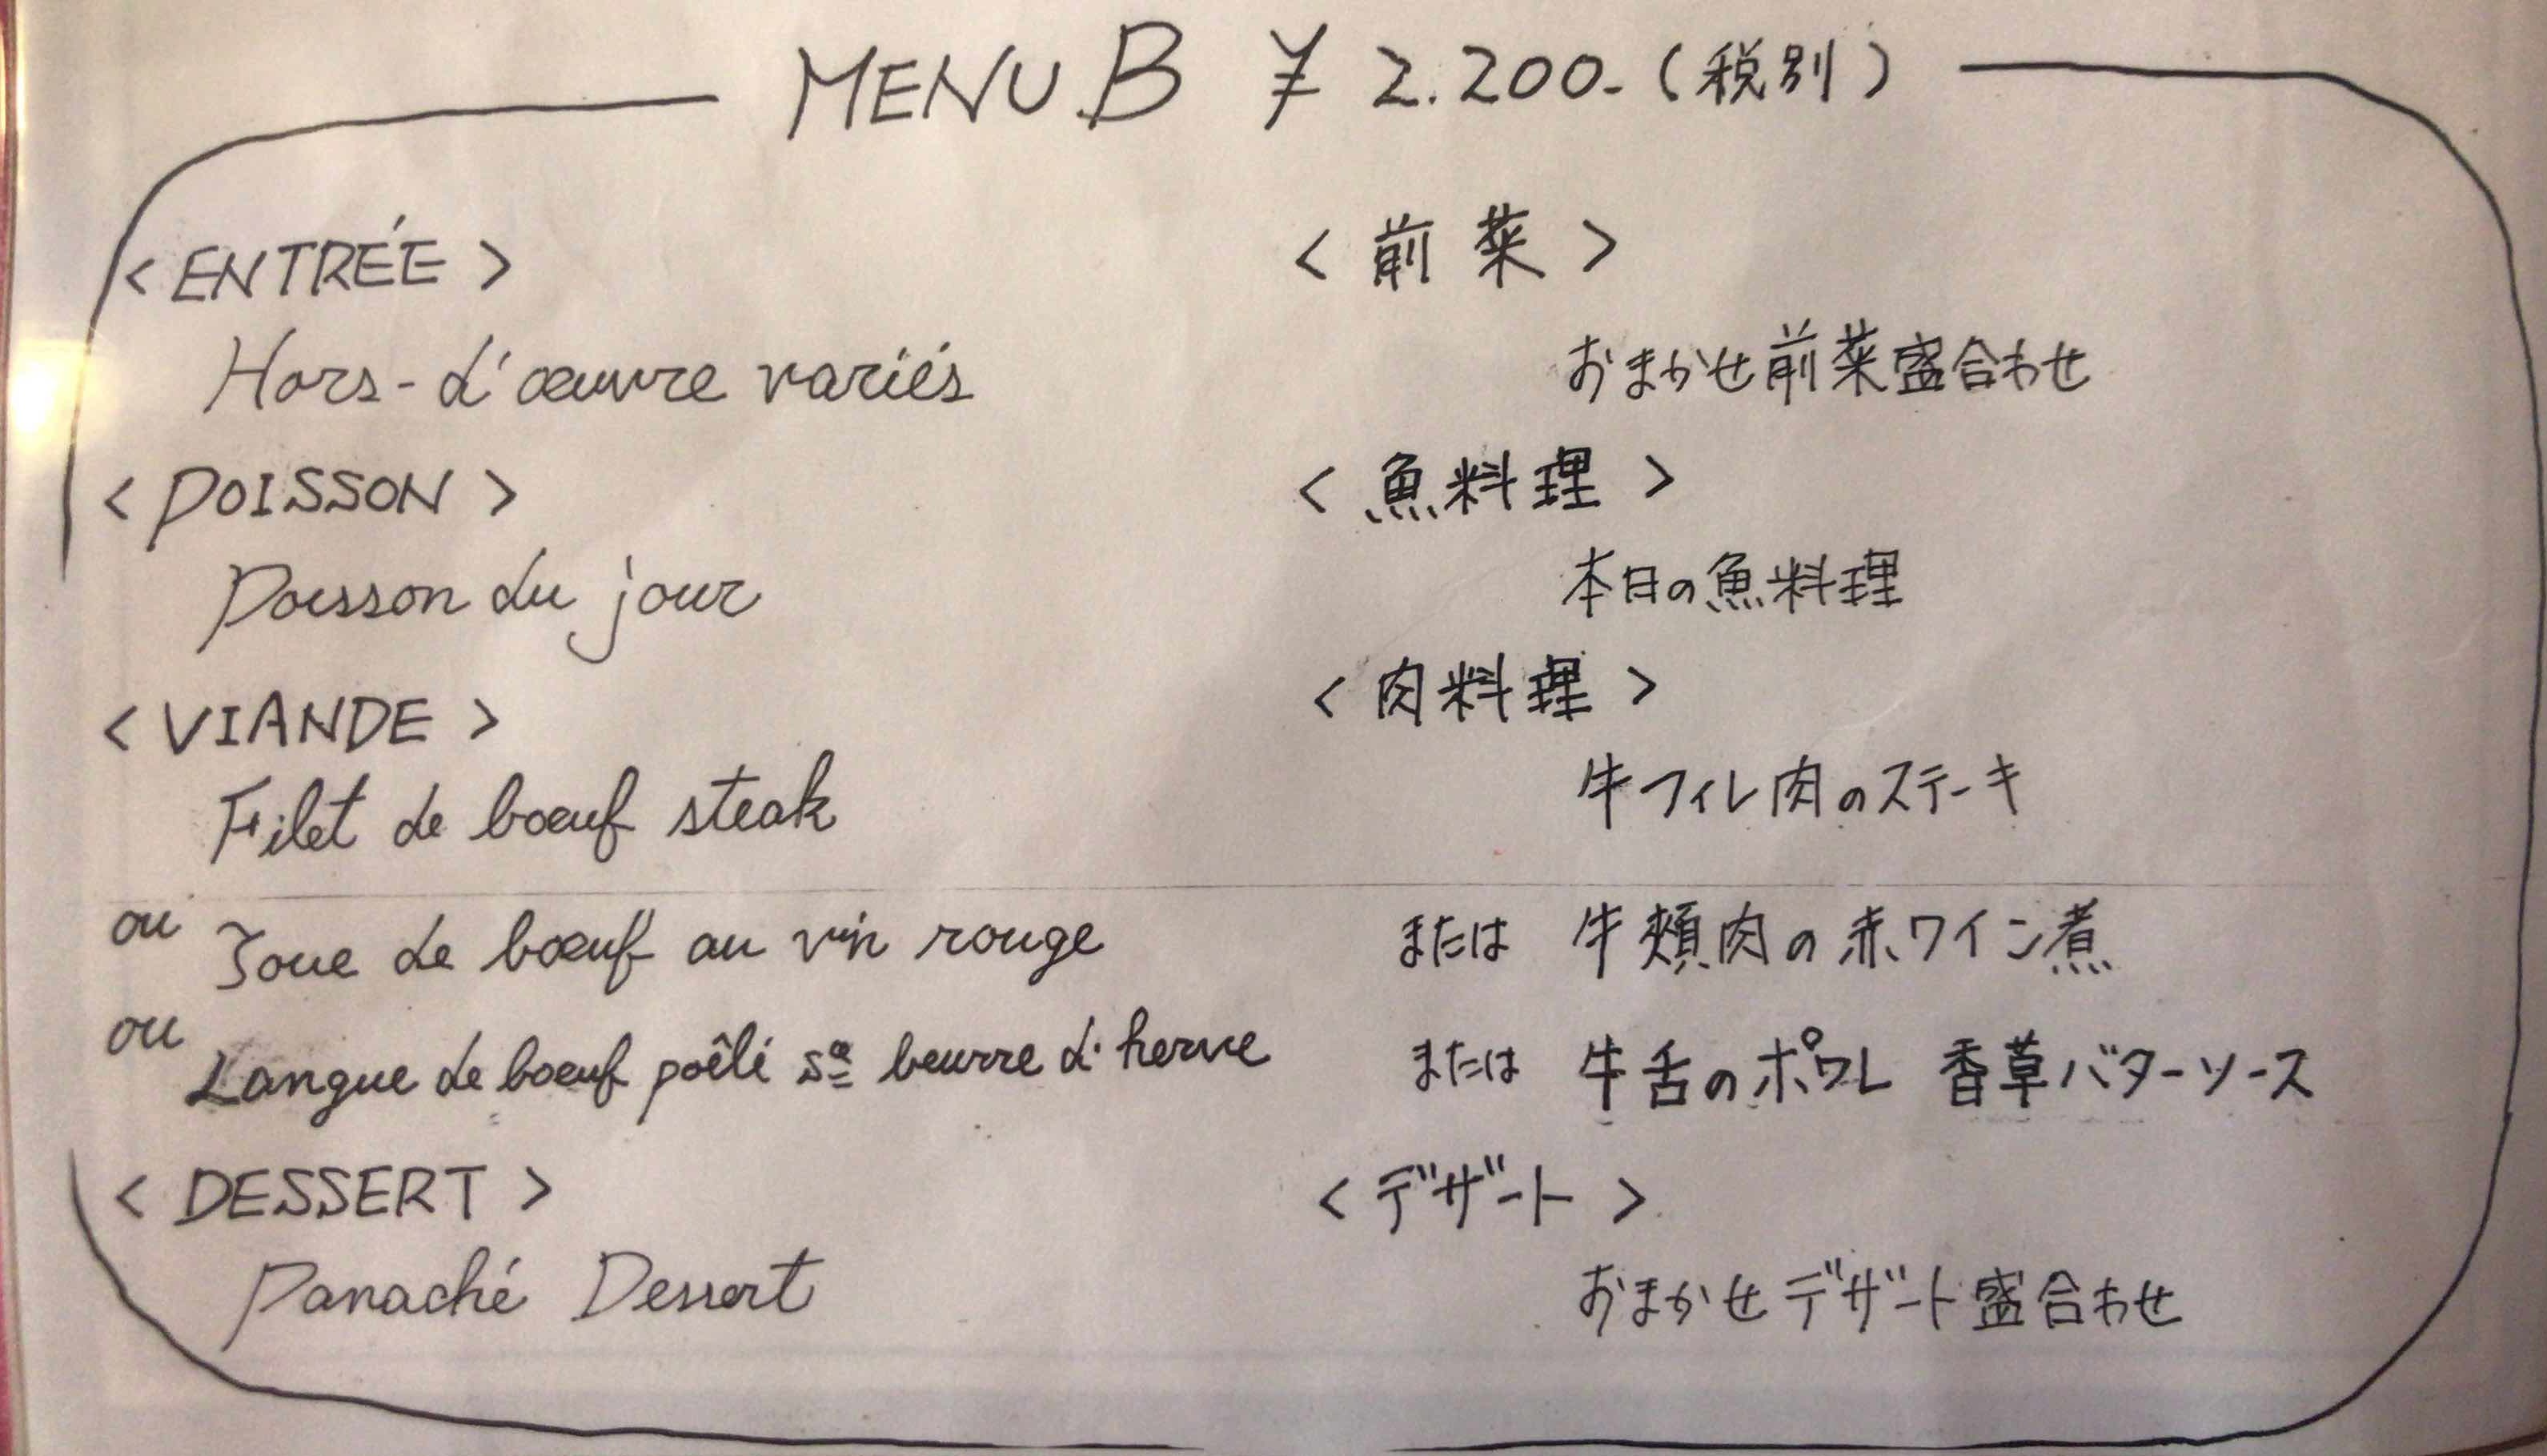 MENU.B ¥2.200-(税別)
<ENTRÉE>
Hors-d'œuvre variés
<POISSON>
Poisson du jour
<VIANDE>
Filet de bœuf steak
ou Joue de bœuf au vin rouge
ou Langue de bœuf poêlé sa beurre d'herve
<DESSERT>
Panaché Dessert
<前菜>
おまかせ前菜盛合わせ
<魚料理>
本日の魚料理
<肉料理>
牛フィレ肉のステーキ
または 牛頬肉の赤ワイン煮
または 牛舌のポワレ 香草バターソース
<デザート>
おまかせデザート盛合わせ